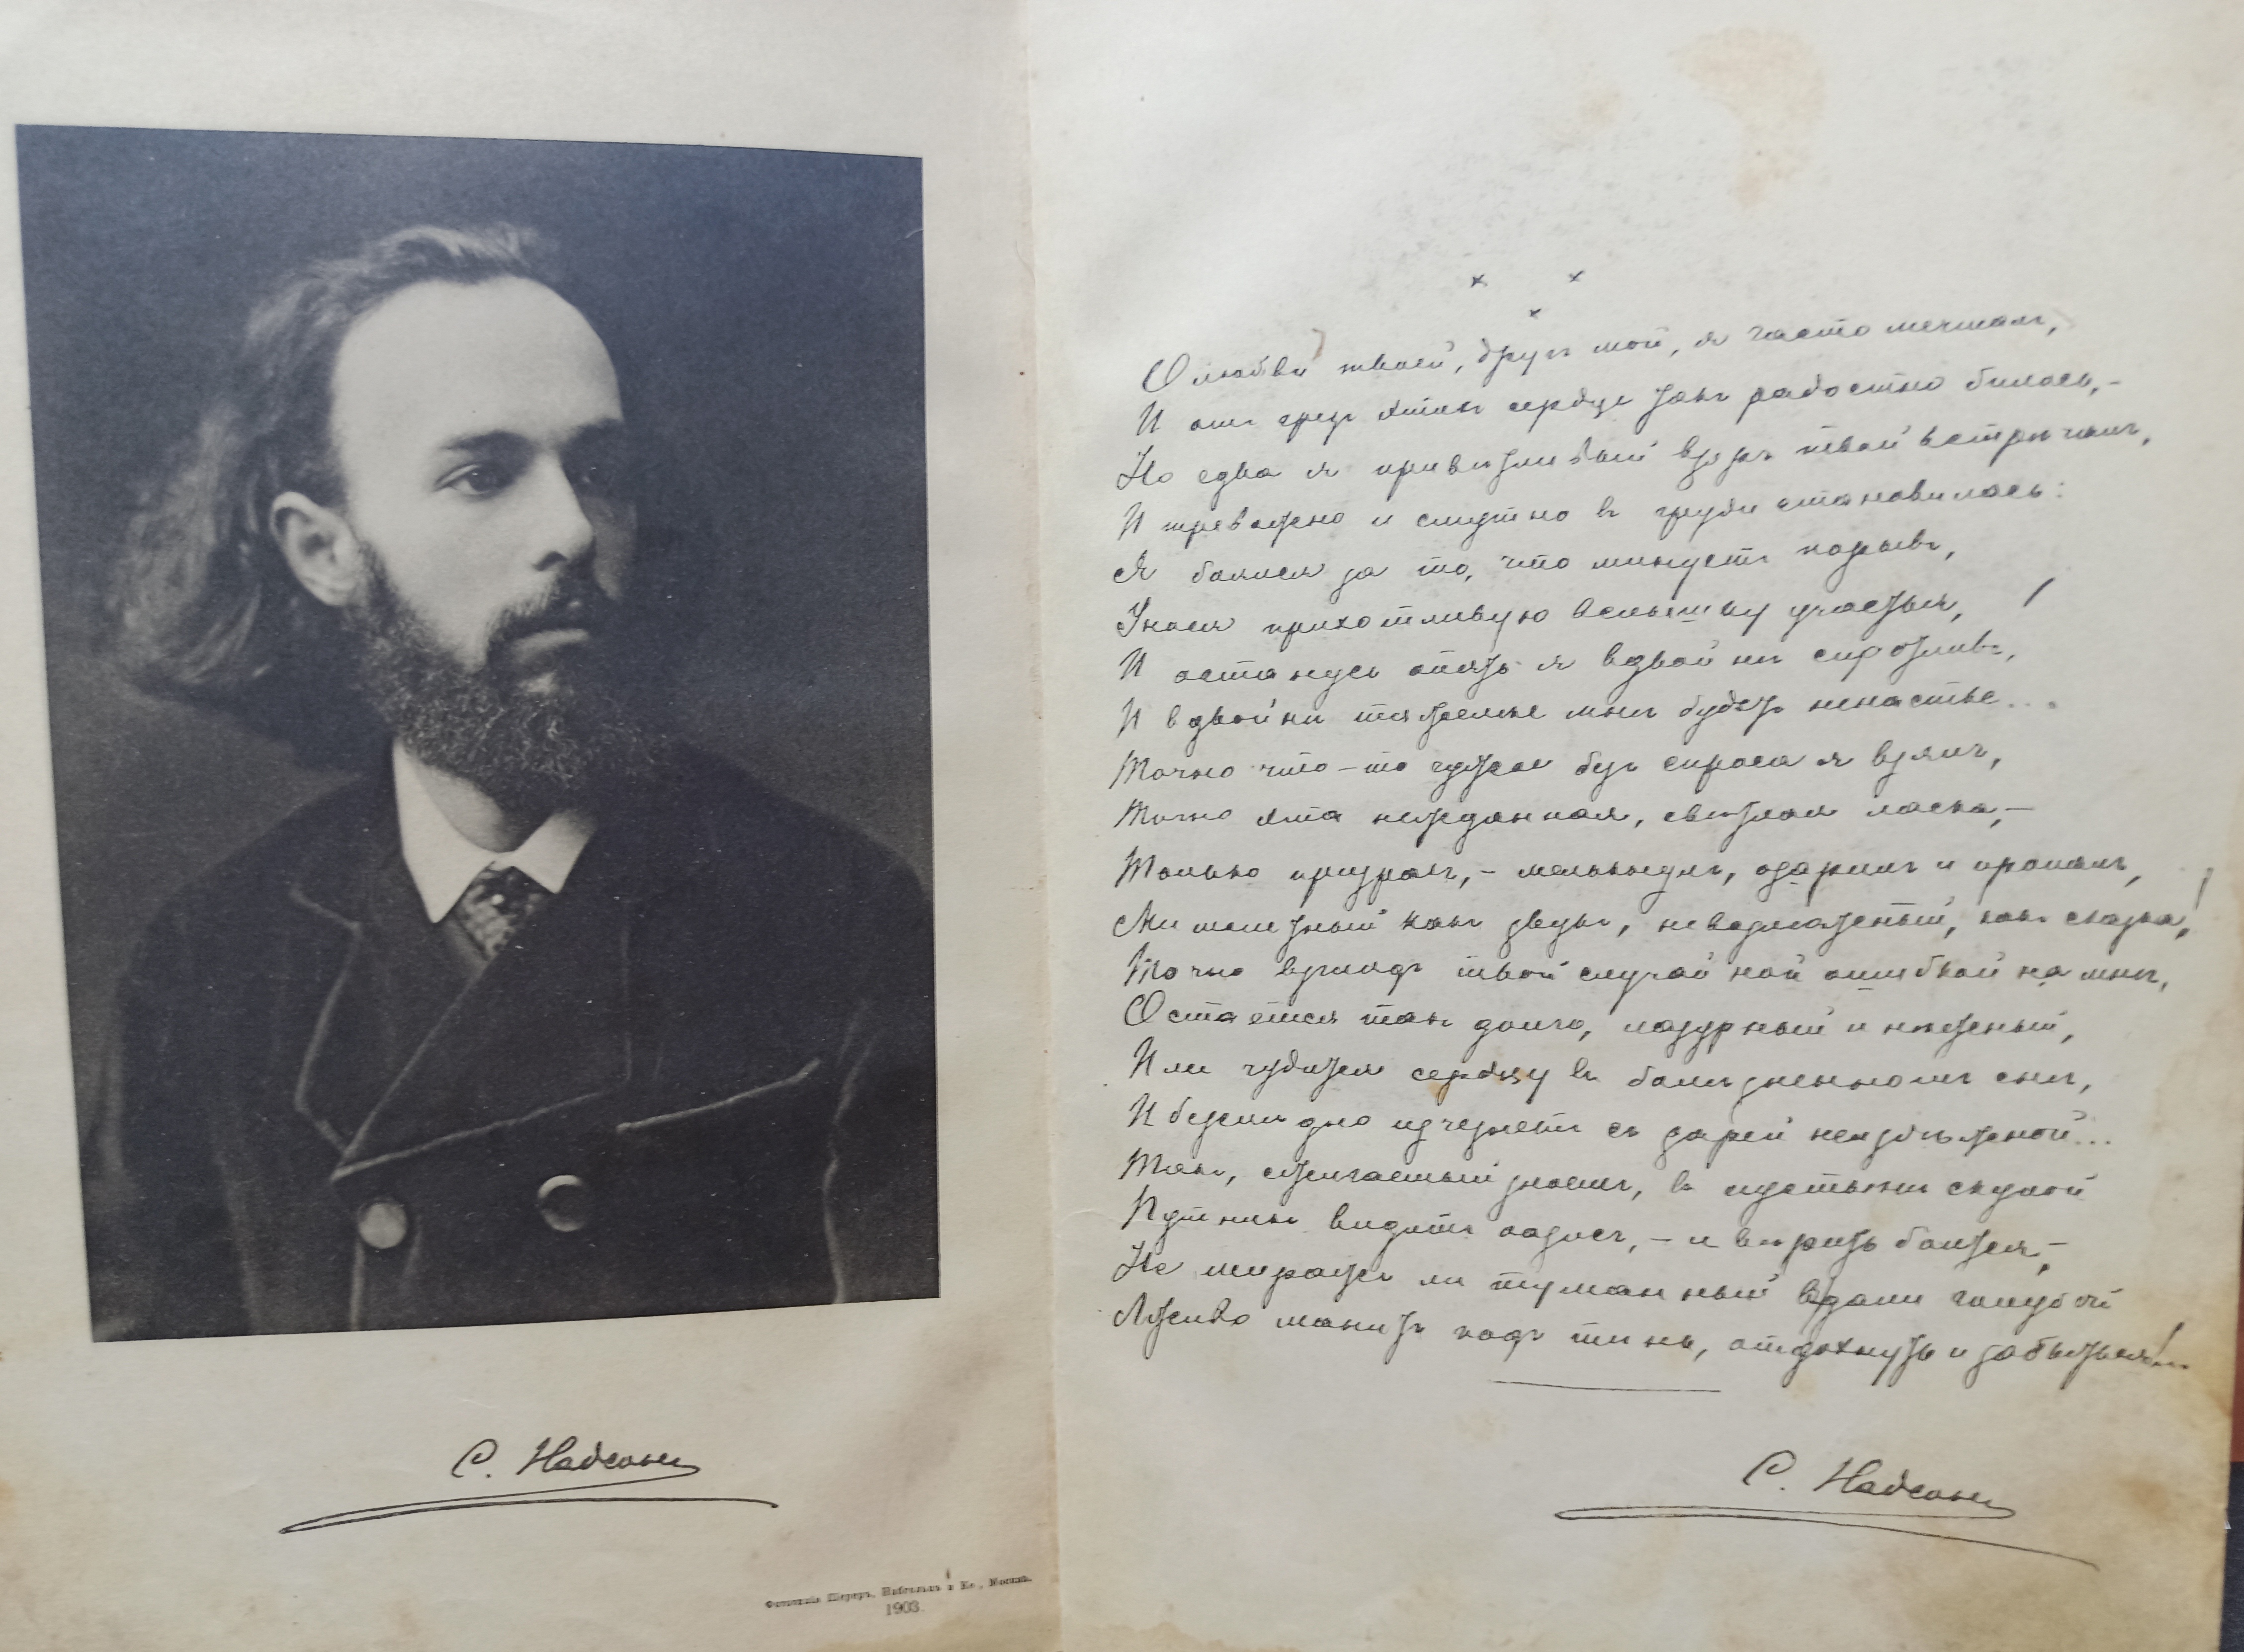 С. Надсонъ
Фототипія Шереръ, Набгольцъ и Ко., Москва.
1903.
О любви твоей, другъ мой, я часто мечталъ,
И отъ грезъ этихъ сердце такъ радостно билось,–
Но едва я привѣтливый взоръ твой встрѣчалъ,
И тревожно и смутно въ груди становилось:
Я боялся за то, что минуетъ порывъ,
Унося прихотливую вспышку участья,
И останусь опять я вдвойнѣ сиротливъ,
И вдвойнѣ тяжелѣе мнѣ будетъ ненастье...
Точно что-то чужое безъ спроса я взялъ,
Точно эта нежданная, свѣтлая ласка,–
Только призракъ,– мелькнулъ, озарилъ и пропалъ,
Мимолетный какъ звукъ, невозможный, какъ сказка!
Точно взглядъ твой случайной ошибкой на мнѣ,
Остается такъ долго, лазурный и нѣжный,
Или чудится сердцу въ болѣзненномъ снѣ,
И безслѣдно изчезнетъ съ зарей неизбѣжной...
Такъ, сжигаемый зноемъ, въ пустынѣ скупой
Путникъ видитъ оазисъ,– и вѣрить боится,–
Не миражъ ли туманный вдали голубой
Лживо манитъ подъ тѣнь, отдохнуть и забыться!..
С. Надсонъ